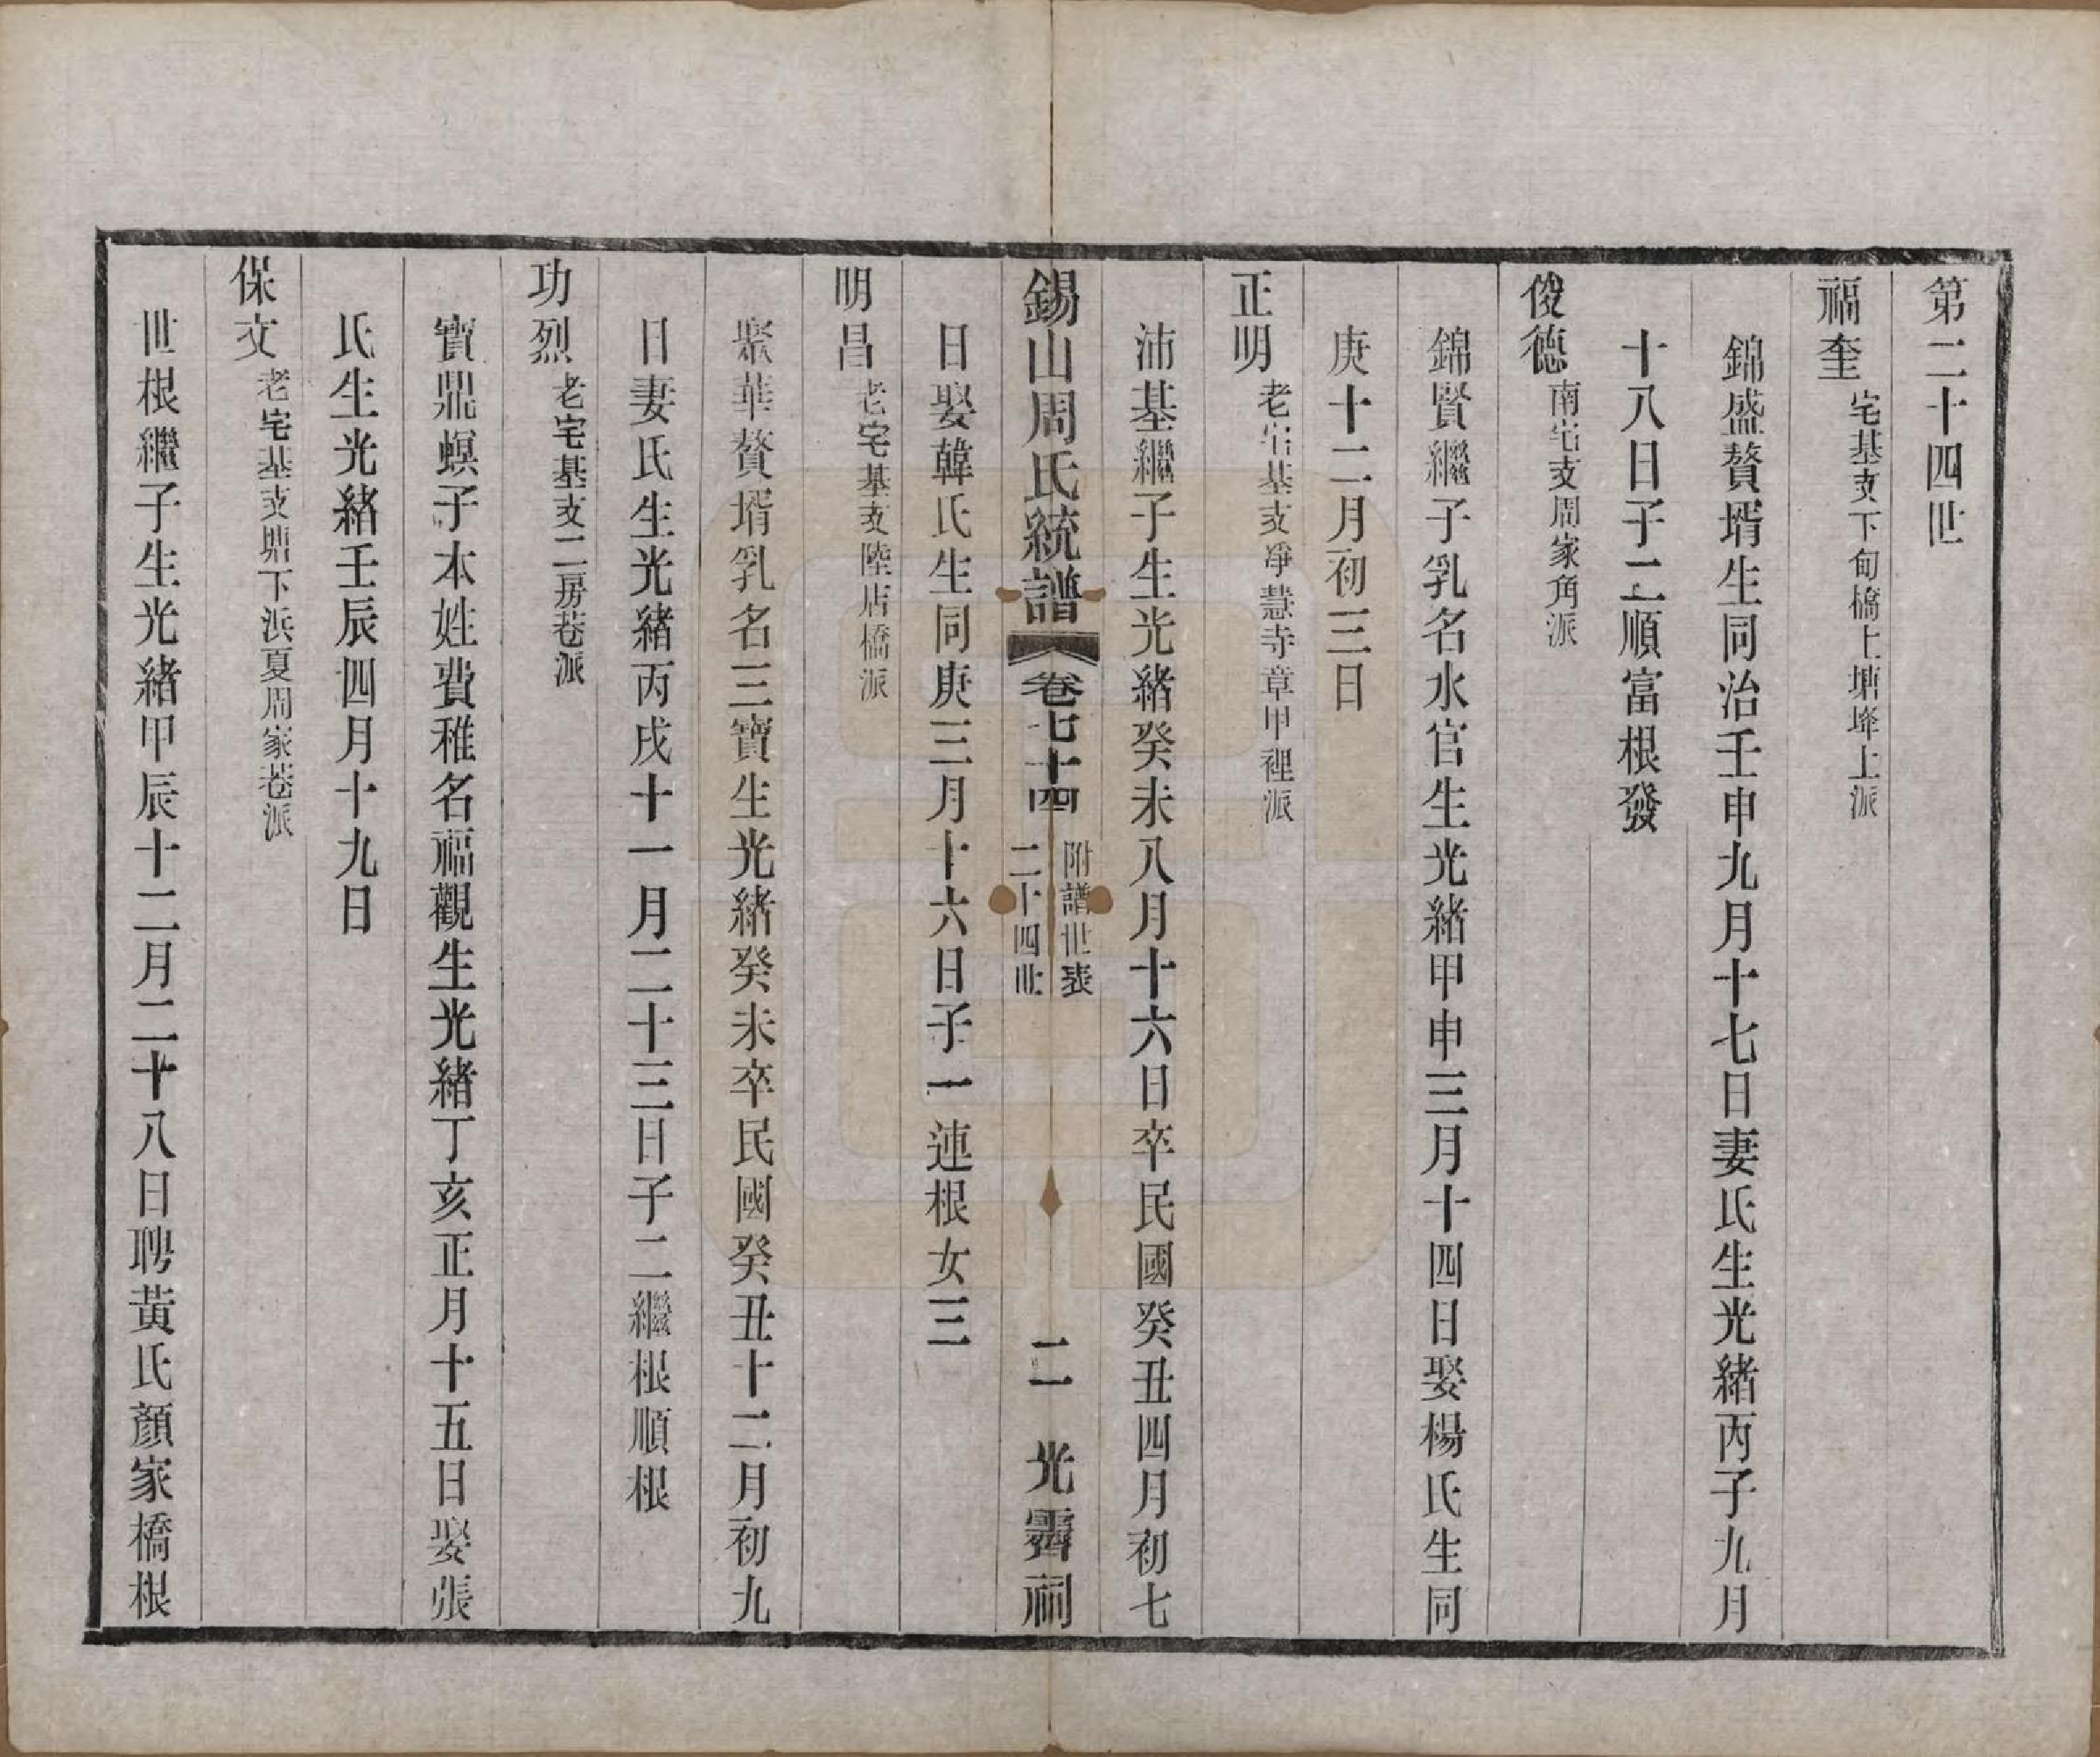 第二十四世
福奎宅基支下甸橋上塘墿上派
錦盛贅壻生同治壬申九月十七日妻氏生光緒丙子九月
十八日子二順富根發
俊德南宅支周家角派
錦賢繼子乳名水官生光緒甲申三月十四日娶楊氏生同
庚十二月初三日
正明老宅基支淨慧寺章甲裡派
沛基繼子生光緒癸未八月十六日卒民國癸丑四月初七
錫山周氏統譜 卷七十四 附譜世表 二十四世 二 光霽祠
日娶韓氏生同庚三月十六日子一連根女三
明昌老宅基支陸店橋派
聚華贅壻乳名三寶生光緒癸未卒民國癸丑十二月初九
日妻氏生光緒丙戌十一月二十三日子二繼根順根
功烈老宅基支二房巷派
寶鼎螟子本姓費稚名福觀生光緒丁亥正月十五日娶張
氏生光緒壬辰四月十九日
保文老宅基支塘下浜夏周家巷派
世根繼子生光緒甲辰十二月二十八日聘黃氏顏家橋根